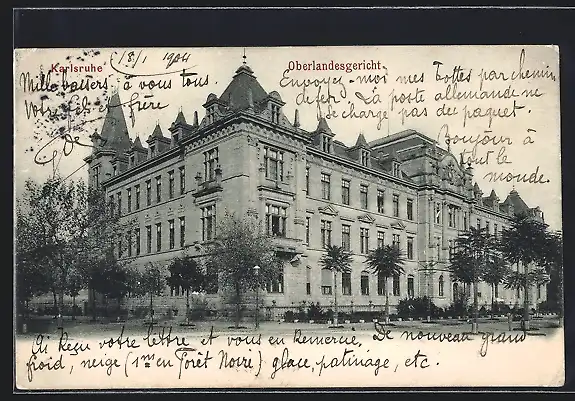 Karlsruhe (18/1 1904
Oberlandesgericht
Mille baisers à vous tous.
Votre fils et frère
Envoyez-moi mes bottes par chemin
de fer. La poste allemande ne
se charge pas du paquet.
Bonjour à
tout le
monde.
Ai reçu votre lettre et vous en remercie. De nouveau grand
froid, neige (1m en Forêt Noire) glace, patinage, etc.